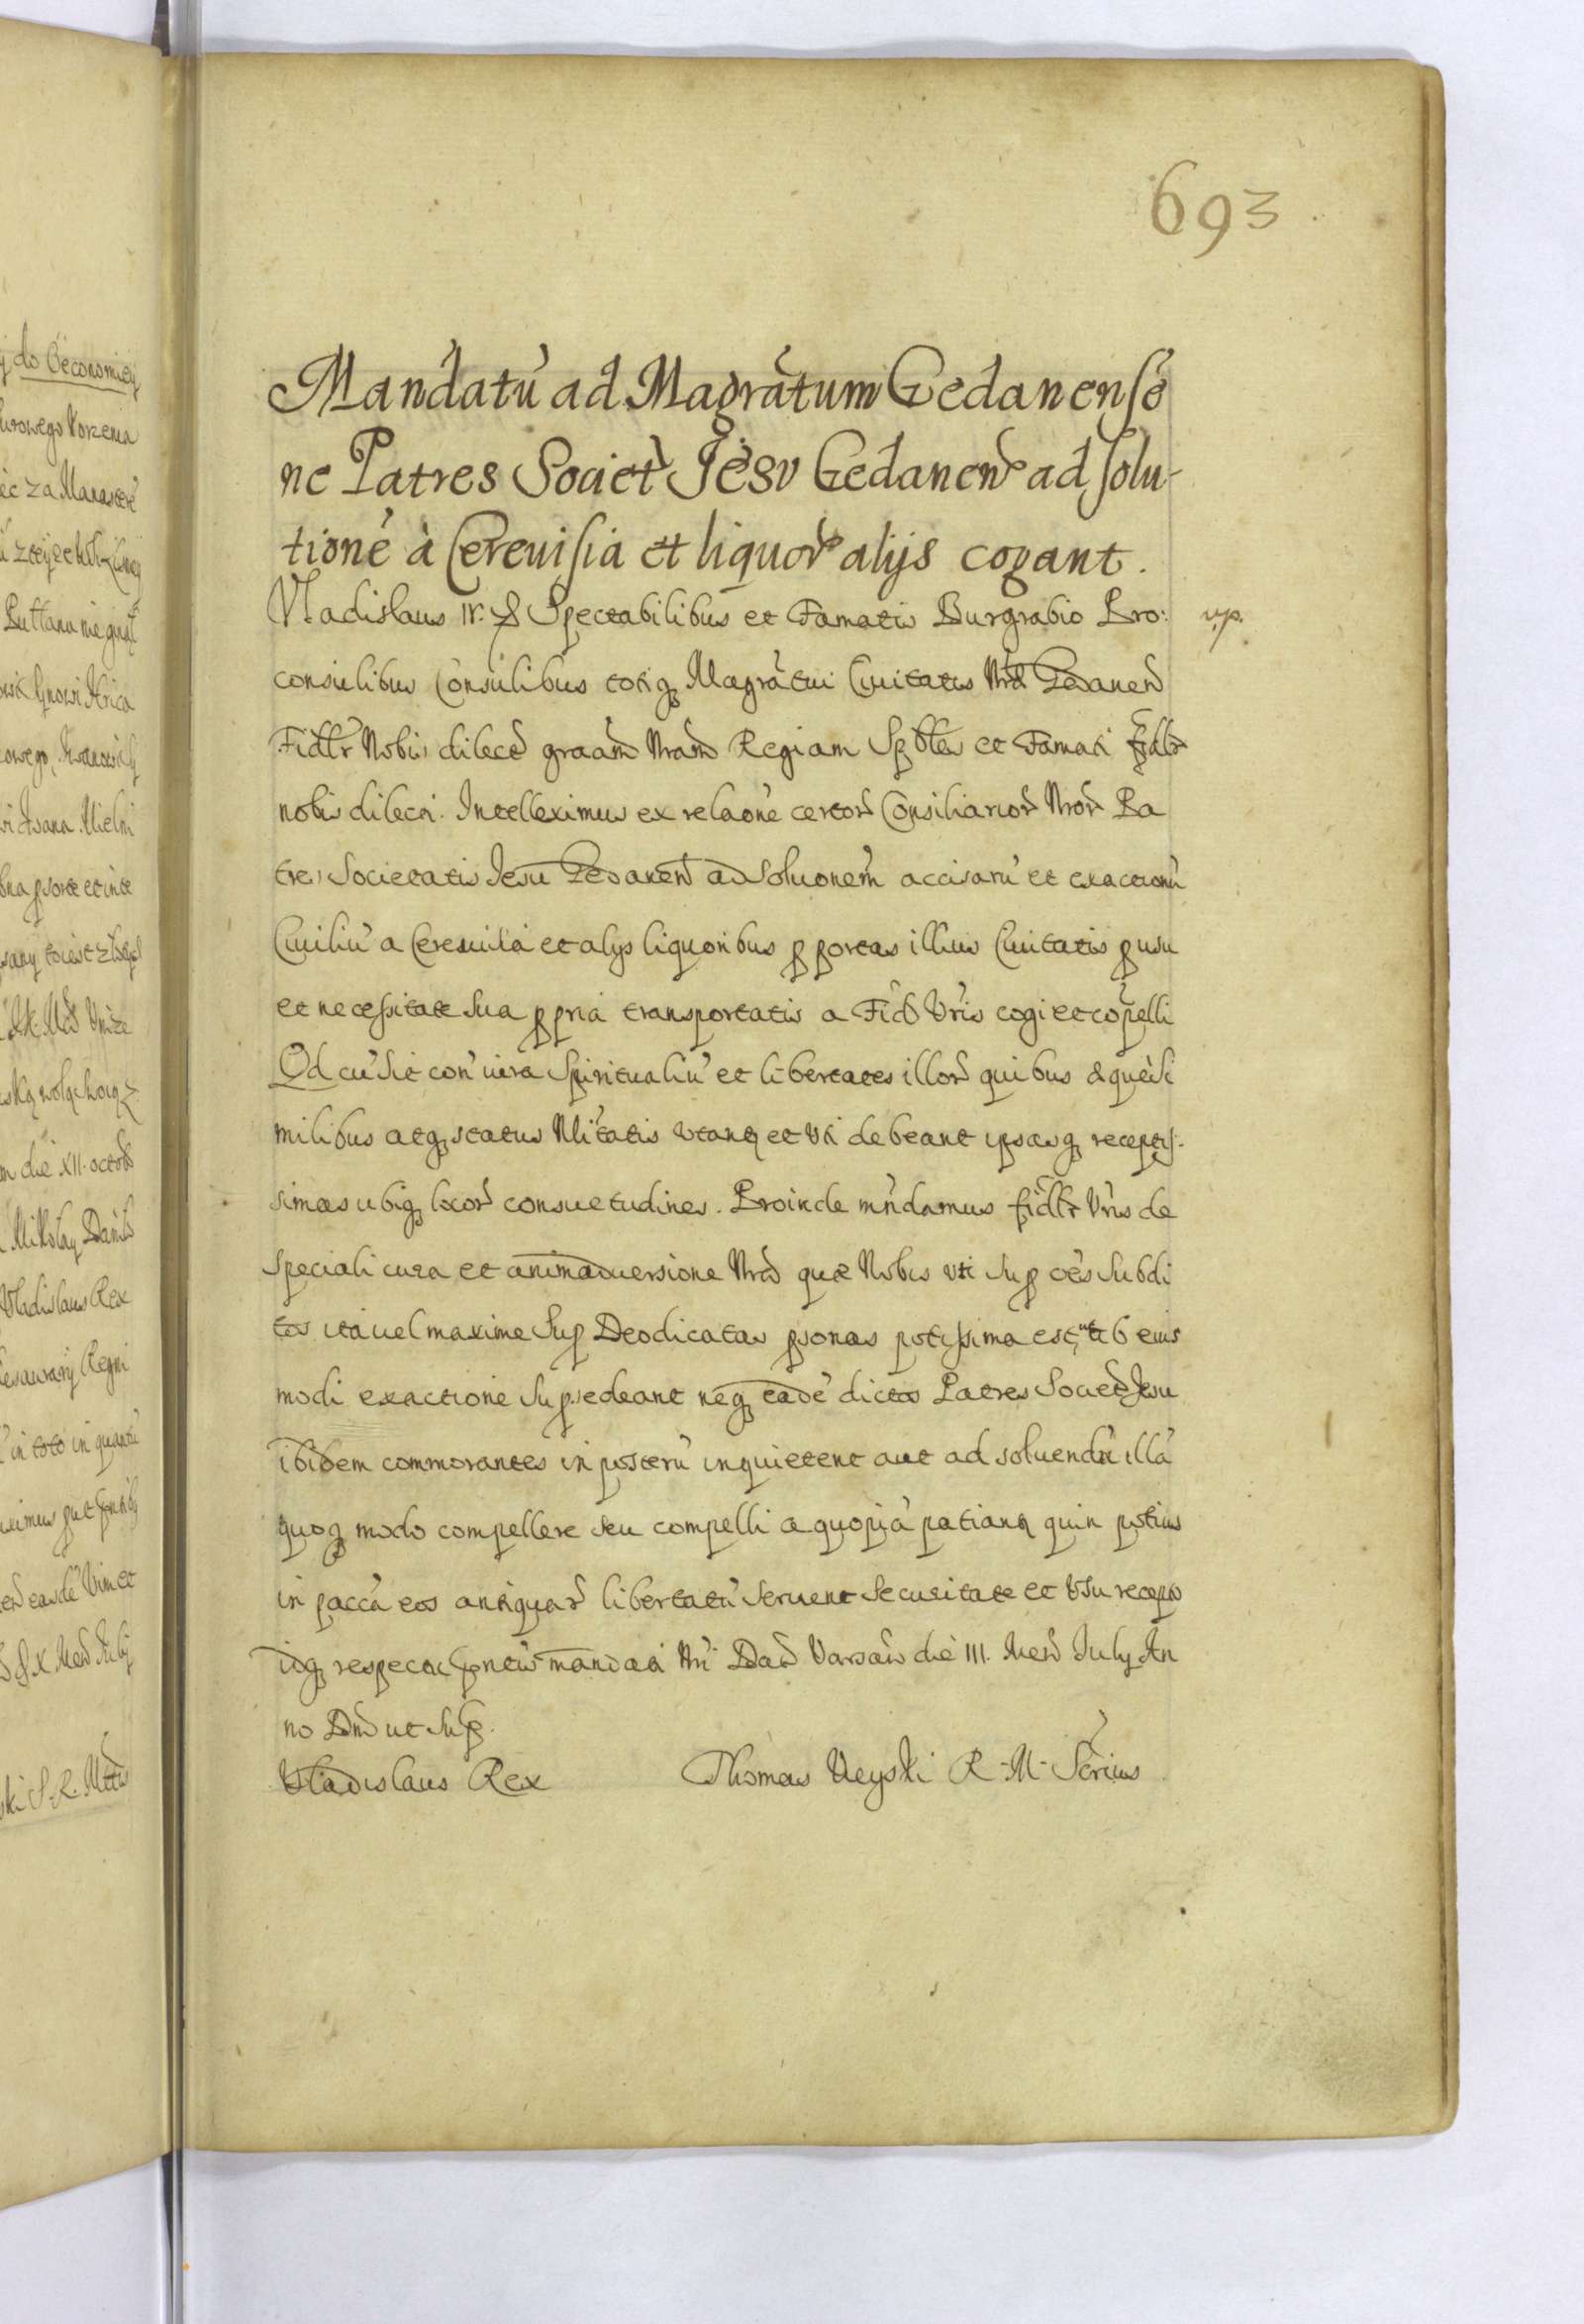 693
Mandatũ ad Magratum Gedanense
ne Patres Societ Jesv Gedanen ad solu-
tionẽ à Cerevisia et liquor alijs cogant.
Vladislaus IV. Spectabilibus et Famatis Burgrabio Pro:
v.p.
consulibus Consulibus totiq Magratui Civitatis Nrae Gedanen
Fidlr Nobis dilect graam Nram Regiam Spbles et Famati fidlr
nobis dilecti. Intelleximus ex relaone certor Consiliarior Nror Pa
tres Societatis Jesu Gedanen ad soluonem accisarũ et exactionũ
Civiliũ a Cerevisia et alys liquoribus p portas illius Civitatis p usu
et necessitate sua ppria transportatis a Fid Vris cogi et copelli
Qd cũ sit con iura Spiritualiũ et libertates illor quibus
milibus atq status utant et uti debeant ipsasq receptis-
simas ubiq locor consuetudines. Proinde mndamus fidlr Vris de
speciali cura et animadversione Nra quae Nobis uti sup oẽs subdi
tos ita vel maxime sup Deodicatas psonas potissima est, ut ab eius
modi exactione supsedeant neq eadẽ dictos Patres Societ Jesu
ibidem commorantes in posterũ inquietent aut ad soluendũ illã
quoq modo compellere seu compelli a quopiã patiant quin potius
in paccã eos antiquar libertatũ servent securitate et usu recepto
idq respectu mandati Nri Dat Varsaw die III. Men July An
no Dni ut sup.
Vladislaus Rex Thomas Ueyski R. M. Secrius
y do Oeconomiey
urowego Korzenia
ec za
Puttana
Hrica
owego, Iwanowi
wi Iwana Mielni
sorte et
m die XII. octobr
Mikolay Danilo
Vladislaus Rex
esaurarij Regni
in toto in quantũ
ximus put
eandẽ Vim et
X Men July
ski S. R. Mttis